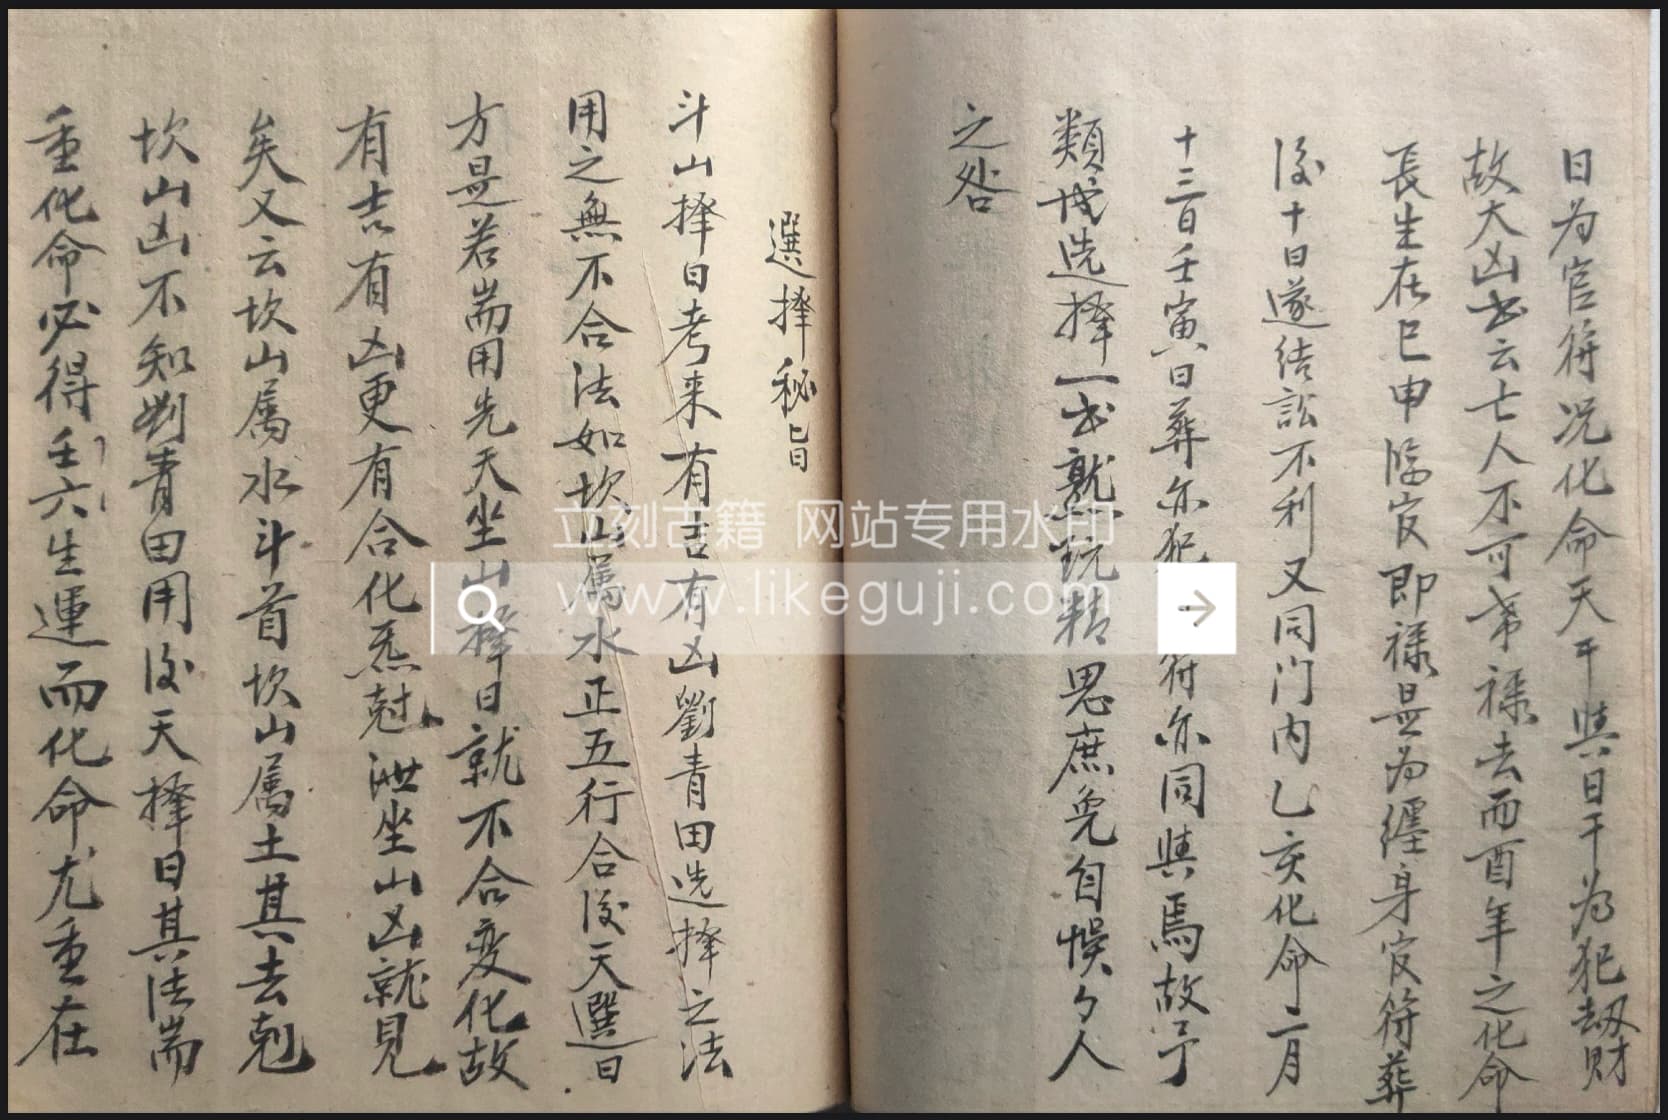 日为官符况化命天干與日干为犯刼財
故大凶书云士人不可常禄去而酉年之化命
長生在巳申临官即禄是为纒身官符葬
後十日遂结訟不利又同门内乙亥化命二月
十三日壬寅日葬亦犯符亦同與焉故予
類成选擇一书熟玩精思庶免自悞悞人
之咎
選擇秘旨
斗山擇日考来有吉有凶劉青田选擇之法
用之無不合法如坎山属水正五行合後天選日
方是若耑用先天坐山擇日就不合变化故
有吉有凶更有合化炁尅泄坐山凶就見
矣又云坎山属水斗首坎山属土其去剋
坎山凶不知刘青田用後天擇日其法耑
重化命必得壬六生運而化命尤重在
立刻古籍 网站专用水印
www.likeguji.com